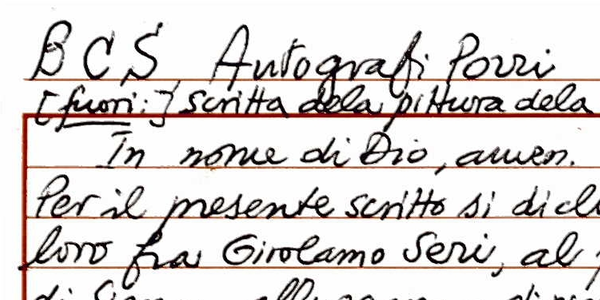 BCS Autografi Porri
[fuori:] scritta dela pittura dela
In nome di Dio, amen.
Per il presente scritto si dicl
loro fra Girolamo Seri, al
di